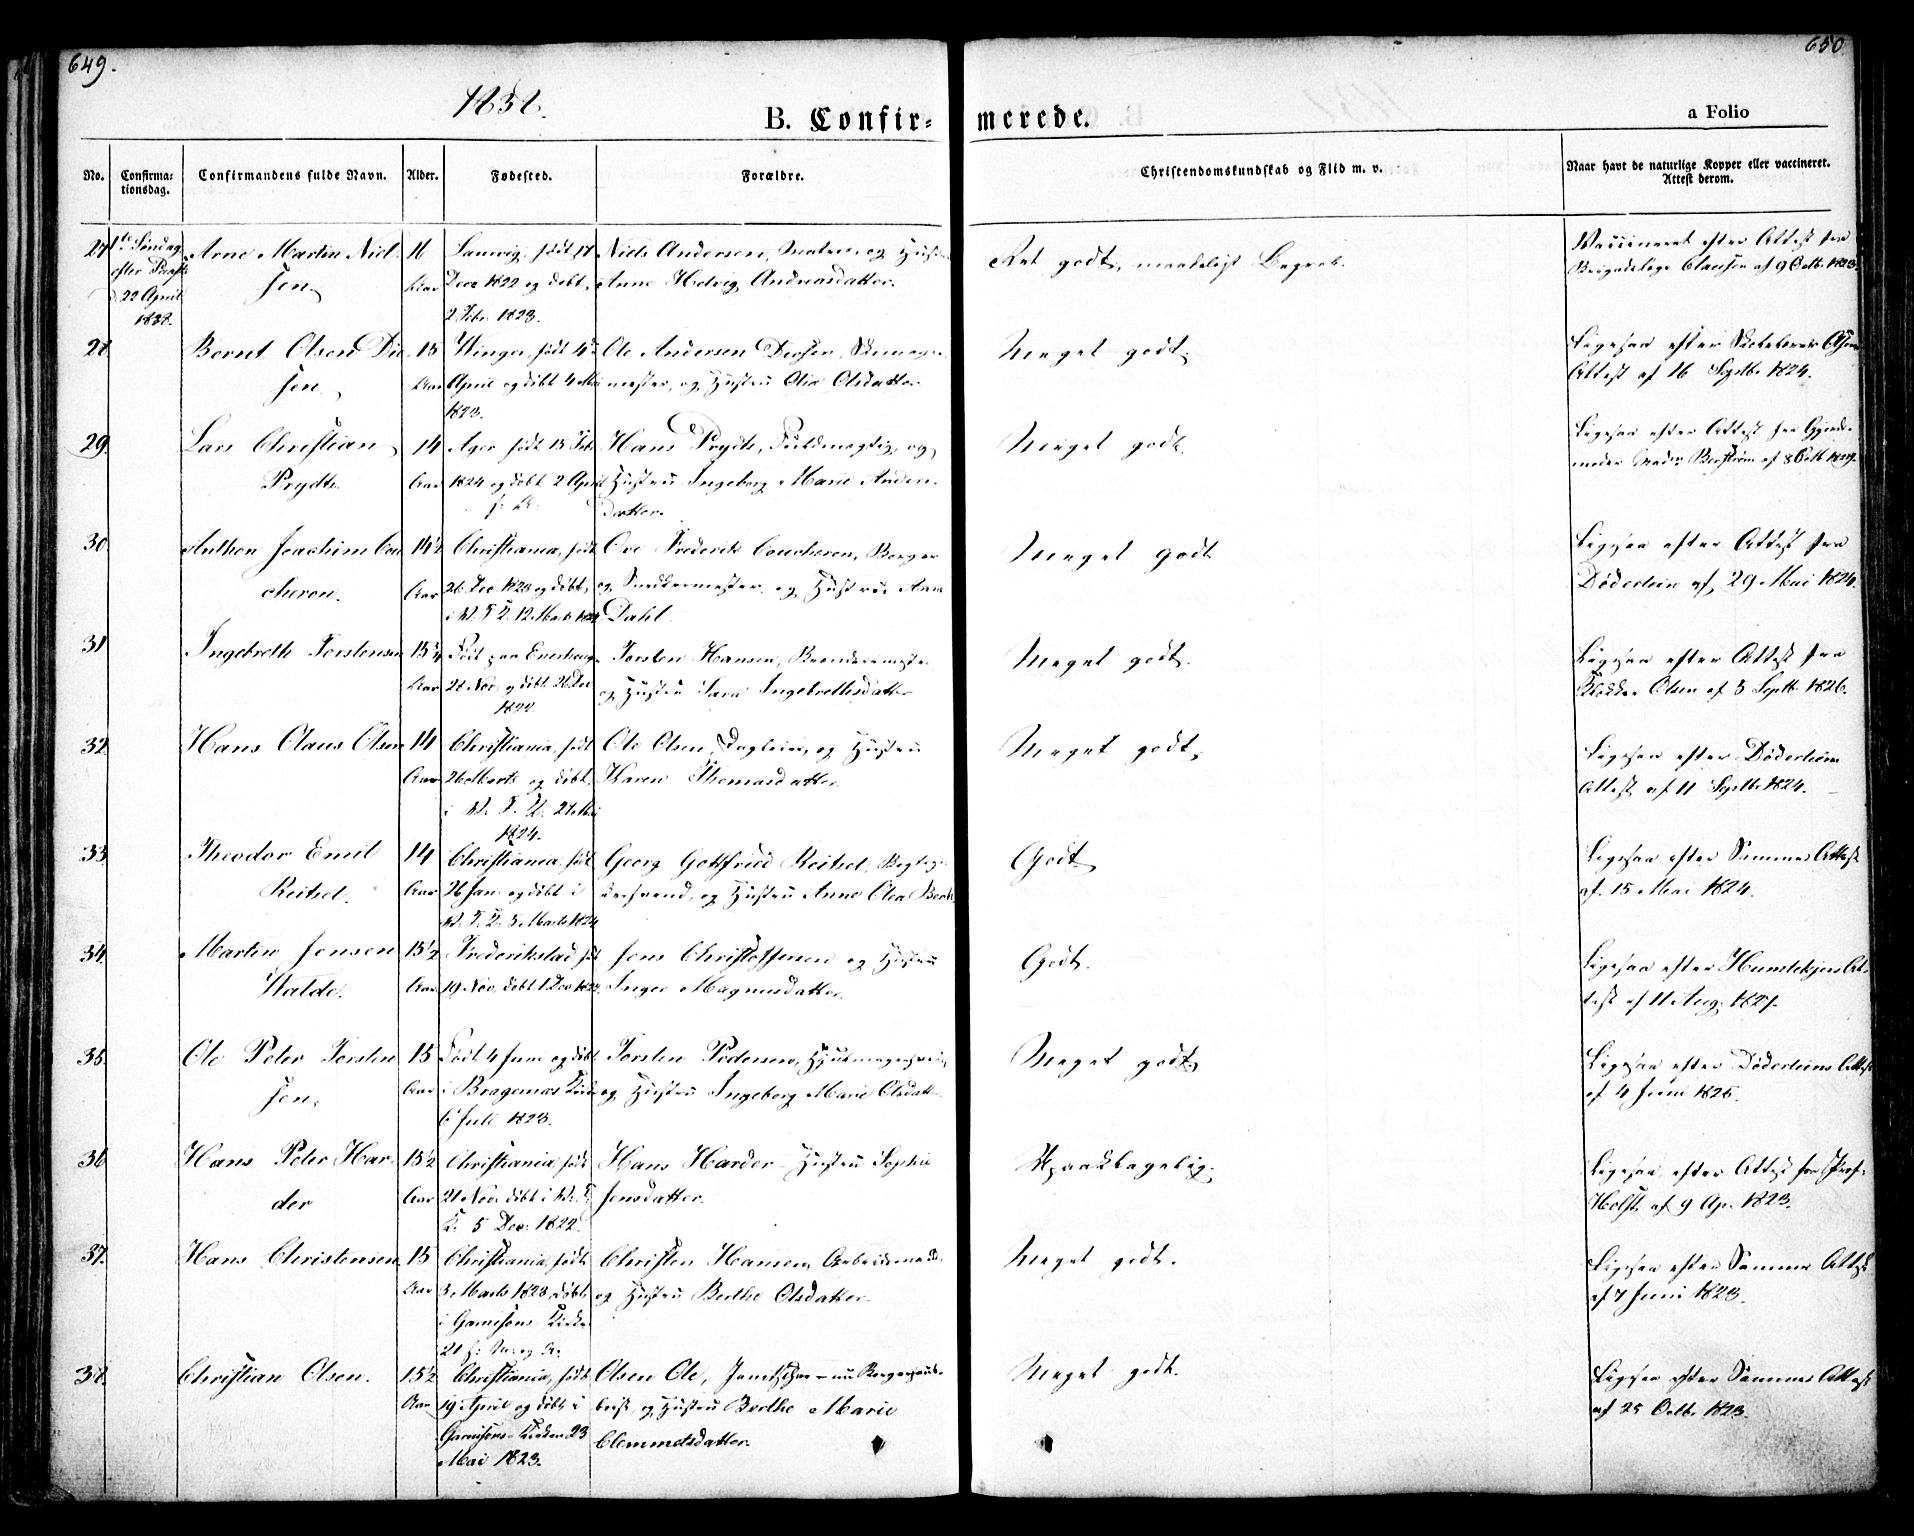 649.
650
1838.
B. Confir=
merede.
a Folio
No.
Confirma-
tionsdag.
Confirmandens fulde Navn.
Alder.
Fødested.
Forældre.
Christendomskundskab og Flid m. v.
Naar havt de naturlige Kopper eller vaccineret.
Attest derom.
27 1te Søndag Arne Martin Niel- 16 født 17 Niels Andersen, og Hustru Ret godt, maadeligt Begreb. Vaccineret efter Attest fra
efter Paaske sen. Aar Decr 1822 og døbt Anne Helvig Andreasdatter. Brigadelæge Clausen af 9 Octb. 1823.
d. 22 April 2 Febr. 1823.
1838.
28 Bernt Olsen Di- 15 Winger, født 4de Ole Andersen Diesen, Skomager- Meget godt. Ligesaa efter Attest af 16 Septbr 1824.
sen. Aar April og døbt 4 Mai mester, og Hustru Olia Olsdatter.
1823.
29. Lars Christian 14 Ager født 15 Feb. Hans Prydts, Fuldmægtig, og Meget godt. Ligesaa efter Attest fra Gjorde-
Prydts. Aar 1824 og døbt 2 April Hustru Ingeborg Marie Anders- moder Mad. Bergstrøm af 8 Octb 1829.
datter.
30. Anthon Joachim Cou- 14½ Christiania, født Ove Frederik Coucheron, Borger Meget godt Ligesaa efter Attest fra
cheron. Aar 26 Dec 1823 og døbt og Snedkermester, og Hustrue Anne Døderlein af 29 Mai 1824.
i V. F. K. 12 Marts 1824 Dahl.
31 Ingebreth Torstensen 15¼ Født paa Enerhaug. Torsten Hansen, Brændevinsmester Meget godt. Ligesaa efter Attest fra
Aar 28 Nov. og døbt 26 Dec og Hustru Sara Ingebrethsdatter Klokker Olsen af 5 Septb. 1826.
1822.
32. Hans Claus Olsen 14 Christiania, født Ole Olsen, Dagleier, og Hustru Meget godt. Ligesaa efter Døderleins
Aar 26 Marts og døbt Karen Thomasdatter. Attest af 11 Septb. 1824.
i V. F. K. 21 Mai
1824.
33 Theodor Emil 14 Christiania, født Georg Gottfried Reitzel, Godt Ligesaa efter Sammes Attest
Reitzel. Aar 26 Jan. og døbt i svend, og Hustru Anne Olea Berth. af 15 Mai 1824.
V. F. K. 5 Marts 1824
34. Martin Jensen 15½ Frederikstad, født Jens Christophersen og Hustru Godt. Ligesaa efter At-
Walde. Aar 19 Nov., døbt 1 Dec 1822. Inger Magnusdatter. test af 11 Aug. 1827.
35. Ole Peter Torsten- 15 Født 4 Juni og døbt Torsten Pedersen, Hjulmagersvend, Meget godt. Ligesaa efter Døderleins Attest
sen. Aar i Bragernæs Kirke og Hustru Ingeborg Marie Olsdatter. af 4 Juni 1825.
6 Juli 1823.
36. Hans Peter Har- 15½ Christiania, født Hans Harder – Hustru Sophie Upaaklagelig. Ligesaa efter Attest fra Prof.
der Aar 21 Nov. døbt i V. F. Jensdatter. Holst af 9 Ap. 1823.
K. 5 Dec. 1822.
37. Hans Christensen 15 Christiania, født Christen Hansen, Arbeidsmand, Meget godt. Ligesaa efter Sammes Attest
Aar 3 Marts 1823, døbt og Hustru Berthe Olsdatter. af 7 Juni 1823.
i Garnisons Kirke
21 s. M. og A.
38. Christian Olsen. 15½ Christiania, født Olsen Ole, Janitschar – nu Meget godt. Ligesaa efter Sammes Attest
Aar 19 April og døbt i og Hustru Berthe Marie af 25 Octb. 1823.
Garnisons-Kirken 23 Clemmetsdatter.
Mai 1823.